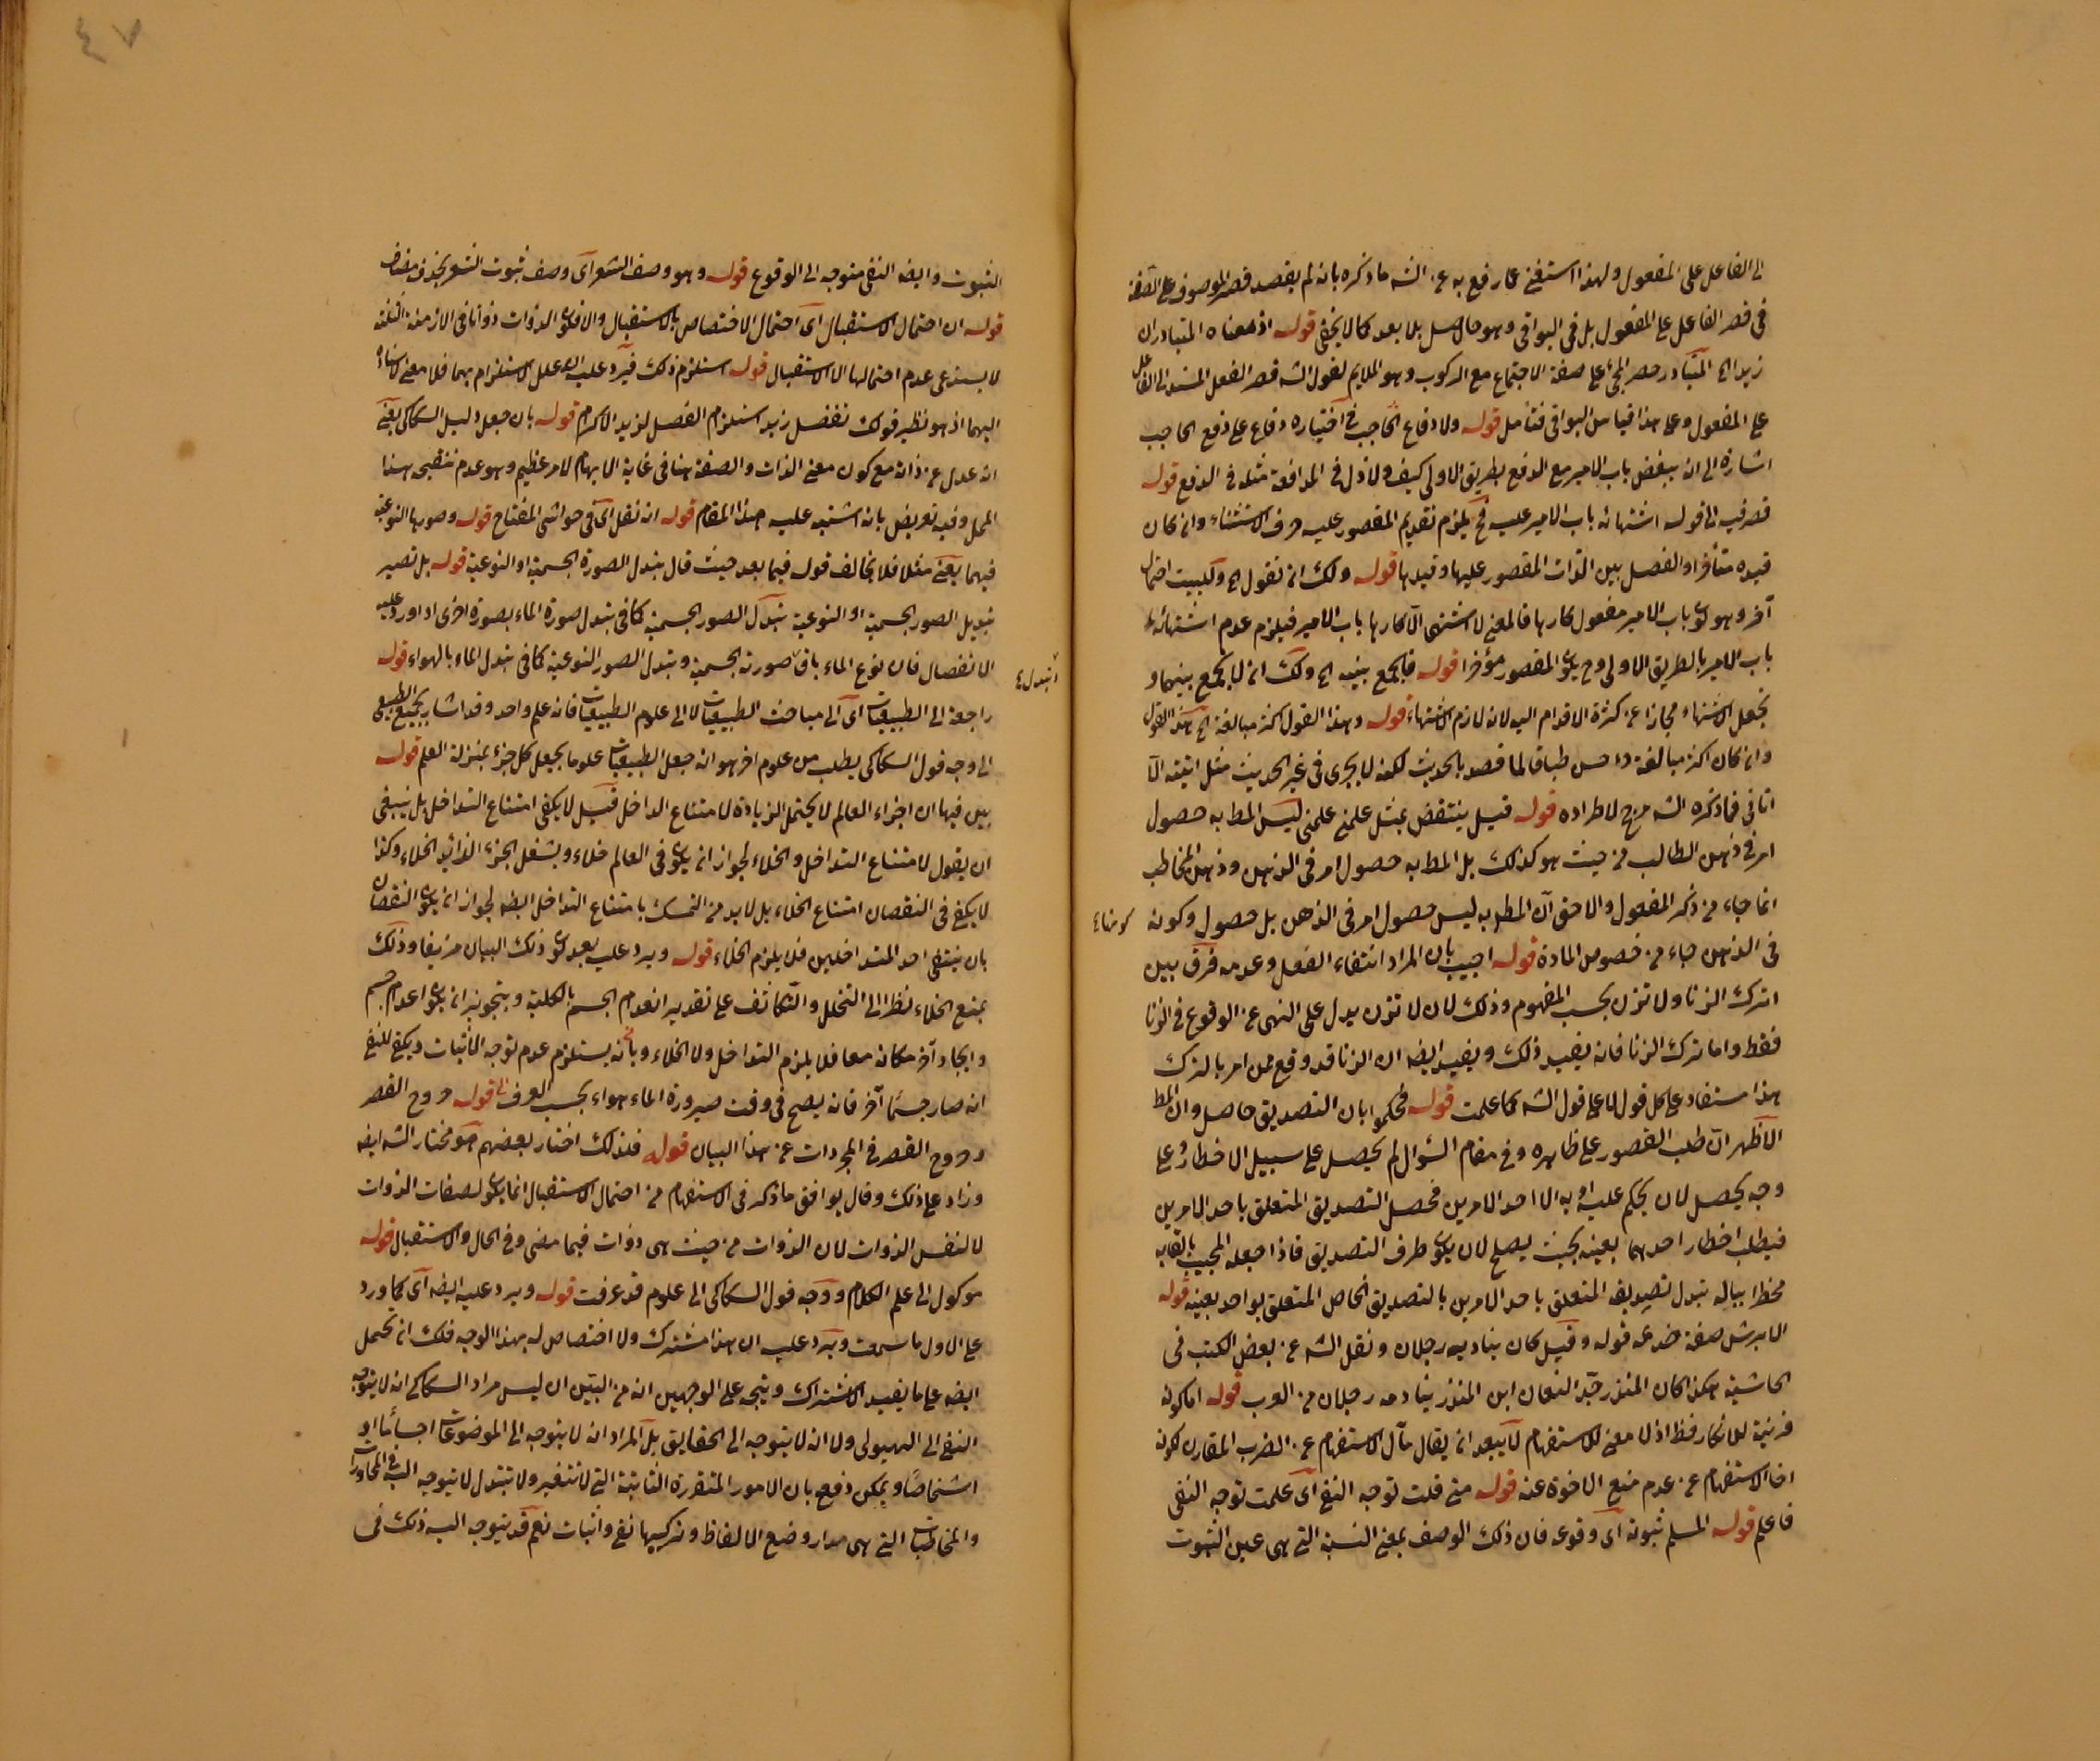 الى الفاعل على المفعول ولهذا استغنى عما رفع به عن الشه ما ذكره بانه لم يقصد قصر الموصوف على الصفة
فى قصر الفاعل على المفعول بل فى البواقى وهو حاصل بلا بعد كما لا يخفى قوله اذ معناه المتبادر ان
زيدا اه المتبادر حصر المجئ على صفة الاجتماع مع الركوب وهو الملايم لقول الشه قصر الفعل المسند الى الفاعل
على المفعول وعلى هذا قياس البواقى فتأمل قوله ولا دفاع الحاجب فى اختياره دفاع على دفع الحاجب
اشارة الى انه يبغض باب الامير مع الدفع بطريق الاولى كيف ولا ذل فى المدافعة مثله فى الدفع قوله
قصر فيه الى قوله اشتهائه باب الامير عليه فح يلزم تقديم المقصور عليه حرف الاستثناء وان كان
قيده متأخرا والفصل بين الذات المقصور عليها وقيدها قوله ولك ان تقول اه وللبيت احتمال
آخر وهو كون باب الامير مفعول كارها فالمعنى لا اشتهى الا كارها باب الامير فيلزم عدم اشتهائه
باب الامير بالطريق الاولى وح يكون المقصور مؤخرا قوله فالجمع بينه اه ولك ان لا يجمع بينهما و
تجعل الاشتهاء مجازا عن كثرة الاقدام اليه لانه لازم الاشتهاء قوله وهذا القول اكثر مبالغة اه هذا القول
وان كان اكثر مبالغة واحسن طباقا لما قصد بالحديث لكنه لا يجرى فى غير الحديث مثل اتيته الا
اتانى فما ذكره الشه مرجح لاطراده قوله قيل ينتقض بمثل علمنى علمنى ليس المط به حصول
امر فى ذهن الطالب من حيث هو كذلك بل المط به حصول امر فى الذهن وذهن المخاطب
انما جاء من ذكر المفعول والاحق ان المط به ليس حصول امر فى الذهن بل حصول وكونه
فى الذهن جاء من خصوص المادة قوله اجيب بان المراد انتفاء الفعل وعدمه فرق بين
اترك الزنا ولا تزن بحسب المفهوم وذلك لان لا تزن يدل على النهى عن الوقوع فى الزنا
فقط واما اترك الزنا فانه يفيد ذلك ويفيد ايضه ان الزنا قد وقع ممن امر بالترك
هذا مستفاد على كل قول لا على قول الشه كما علمت قوله فحكموا بان التصديق حاصل وان المط
الاظهر ان طلب القصور على ظاهره وفى مقام السؤال لم يحصل على سبيل الاخطار وعلى
وجه يحصل لان يحكم عليه او به الا احد الامرين فحصل التصديق المتعلق باحد الامرين
فيطلب اخطار احدهما بعينه بحيث يصلح لان يكون طرف التصديق فاذا جعله المجيب
مخطرا بباله تبدل تصديقه المتعلق باحد الامرين بالتصديق الخاص المتعلق بواحد بعينه قوله
الابرش صفة خدعه قوله وقيل كان يناديه رجلان ونقل الشه عن بعض الكتب فى
الحاشية هكذا كان المنذر جد النعمان ابن المنذر ينادمه رجلان من العرب قوله اما كونه
قرينة للانكار فظ اذ لا معنى للاستفهام لا يبعد ان يقال مآل الاستفهام عن الضرب المقارن لكونه
اخا الاستفهام عن عدم منع الاخوة عنه قوله متى قلت توجه النفى اى علمت توجه النفى
فاعلم قوله المسلم ثبوته اى وقوعه فان ذلك الوصف بمعنى النسبة التى هى عين الثبوت
الثبوت وايضه النفى متوجه الى الوقوع قوله وهو وصف الشعر اى وصف ثبوت الشعر بحذف مضاف
قوله ان احتمال الاستقبال اى احتمال الاختصاص بالاستقبال والا فكون الذوات ذواتا فى الازمنة الثلثة
لا يستدعى عدم احتمالها الا الاستقبال قوله استلزم ذلك فيرد عليه انه علل الاستلزام بهما فلا معنى لاسناده
اليهما اذ هو نظير قولك تفضل زيد استلزم الفضل لزيد الاكرام قوله بان جعل دليل السكاكى يعنى
انه عدل عن ذاته مع كون معنى الذات والصفة هنا فى غاية الابهام لامر عظيم وهو عدم تنقيح هذا
المحل وفيه تعريض بانه اشتبه عليه هذا المقام قوله انه نقل اى فى حواشى المفتاح قوله وصورها النوعية
فيهما يعنى مثلا فلا يخالف قوله فيما بعد حيث قال بتبدل الصورة الجسمية او النوعية قوله بل تصير
بتبديل الصور الجسمية او النوعية بتبدل الصور الجسمية كما فى تبدل صورة الماء بصورة اخرى اذا ورد عليه
الانفصال فان نوع الماء باق صورته الجسمية وتبدل الصور النوعية كما فى تبدل الماء بالهواء قوله
راجعة الى الطبيعيات اى الى مباحث الطبيعيات لا الى علوم الطبيعيات فانه علم واحد وقد اشار بجميع الطبيعى
الى وجه قول السكاكى يطلب من علوم اخر هو انه جعل الطبيعيات علوما بجعل كل جزء بمنزلة العلم قوله
بين فيها ان اجزاء العالم لا يحتمل الزيادة لامتناع التداخل قيل لا يكفى امتناع التداخل بل ينبغى
ان يقول لامتناع التداخل والخلاء لجواز ان يكون فى العالم خلاء ويشغل الجزء الزائد الخلاء وكذا
لا يكفى فى النقصان امتناع الخلاء بل لا بد من التمسك بامتناع التداخل ايضه لجواز ان يكون النقصان
بان ينتفى احد المتداخلين فلا يلزم الخلاء قوله ويرد عليه بعد كون ذلك البيان مزيفا وذلك
بمنع الخلاء نظرا الى التخلل والتكاثف على تقدير انعدام الجسم بالكلية وبتجويز ان يكون اعدام جسم
وايجاد آخر مكانه معا فلا يلزم التداخل ولا الخلاء وبانه يستلزم عدم توجه الاثبات ويكفى للنفى
انه صار جسما آخر فانه يصح فى وقت صيرورة الماء هواء بحسب العرف قوله وروح القصر
وروح القصر فى المجردات عن هذا البيان قوله فلذلك اختار بعضهم هو مختار الشه ايضه
وزاد على ذلك وقال يوافق ما ذكره فى الاستفهام من احتمال الاستقبال انما يكون لصفات الذوات
لا لنفس الذوات لان الذوات من حيث هى ذوات فيما مضى وفى الحال والاستقبال قوله
موكول الى علم الكلام ووجه قول السكاكى الى علوم قد عرفت قوله ويرد عليه ايضه اى كما ورد
على الاول ما سمعت ويرد عليه ان هذا مشترك ولا اختصاص له بهذا الوجه فلك ان تحمل
ايضه على ما يفيد الاشتراك ويتجه على الوجهين انه من البين ان ليس مراد السكاكى انه لا يتوجه
النفى الى الهيولى ولا انه لا يتوجه الى الحقايق بل المراد انه لا يتوجه الى الموضوعات اجساما او
اشخاصا ويمكن دفعه بان الامور المتقررة الثابتة التى لا تتغير ولا تتبدل لا يتوجه اليه فى المحاورات
والمخاطبات التى هى مدار وضع الالفاظ وتركيبها نفى واثبات نعم قد يتوجه اليه ذلك فى
٤٧